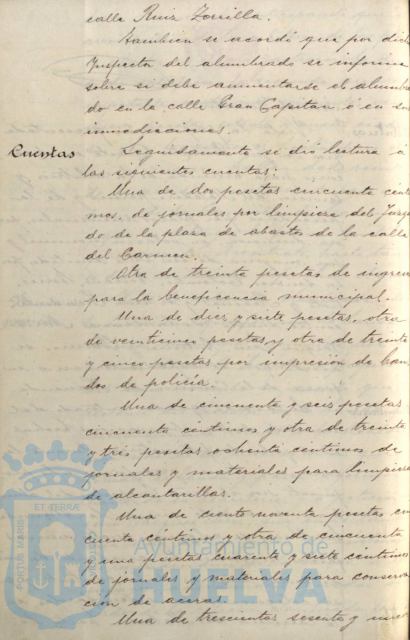 calle Ruiz Zorrilla.
Tambien se acordó que por dicho
Inspector del alumbrado se informe
sobre si debe aumentarse el alumbra
do en la calle Gran Capitan ó en sus
inmediaciones.
Cuentas
Seguidamente se dió lectura á
las siguientes cuentas:
Una de dos pesetas cincuenta cénti
mos, de jornales por limpieza del Juzga
do de la plaza de abastos de la calle
del Carmen.
Otra de treinta pesetas de
para la beneficencia municipal.
Una de diez y siete pesetas, otra
de veintiuna pesetas, y otra de treinta
y cinco pesetas por impresión de ban
dos de policía.
Una de cincuenta y seis pesetas
cincuenta céntimos y otra de treinta
y tres pesetas ochenta céntimos de
jornales y materiales para limpieza
de alcantarillas.
Una de ciento noventa pesetas cin
cuenta céntimos y otra de cincuenta
y una pesetas cuarenta y siete céntimos
de jornales y materiales para conserva
ción de aceras.
Una de trescientas sesenta y
Ayuntamiento de
HUELVA
PORTUS MARIS
ET TERRÆ